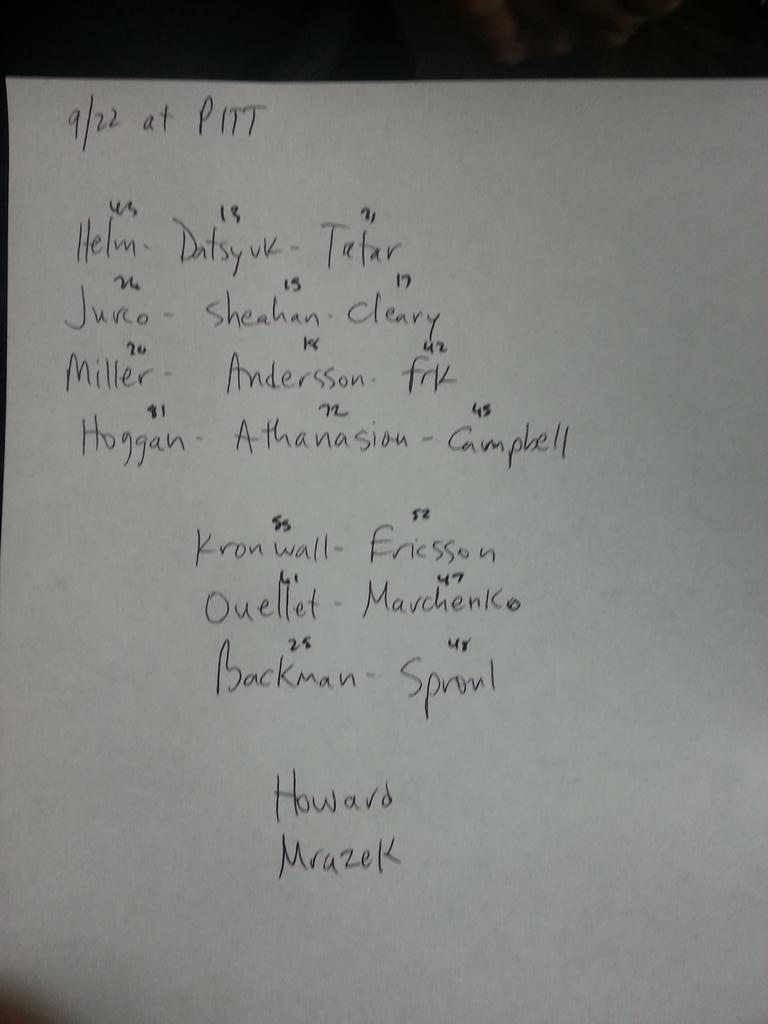 9/22 at PITT
43 13 21
Helm - Datsyuk - Tatar
26 15 17
Jurco - Sheahan - Cleary
20 18 42
Miller - Andersson - Frk
81 72 45
Hoggan - Athanasiou - Campbell
55 52
Kronwall - Ericsson
61 47
Ouellet - Marchenko
25 48
Backman - Sproul
Howard
Mrazek